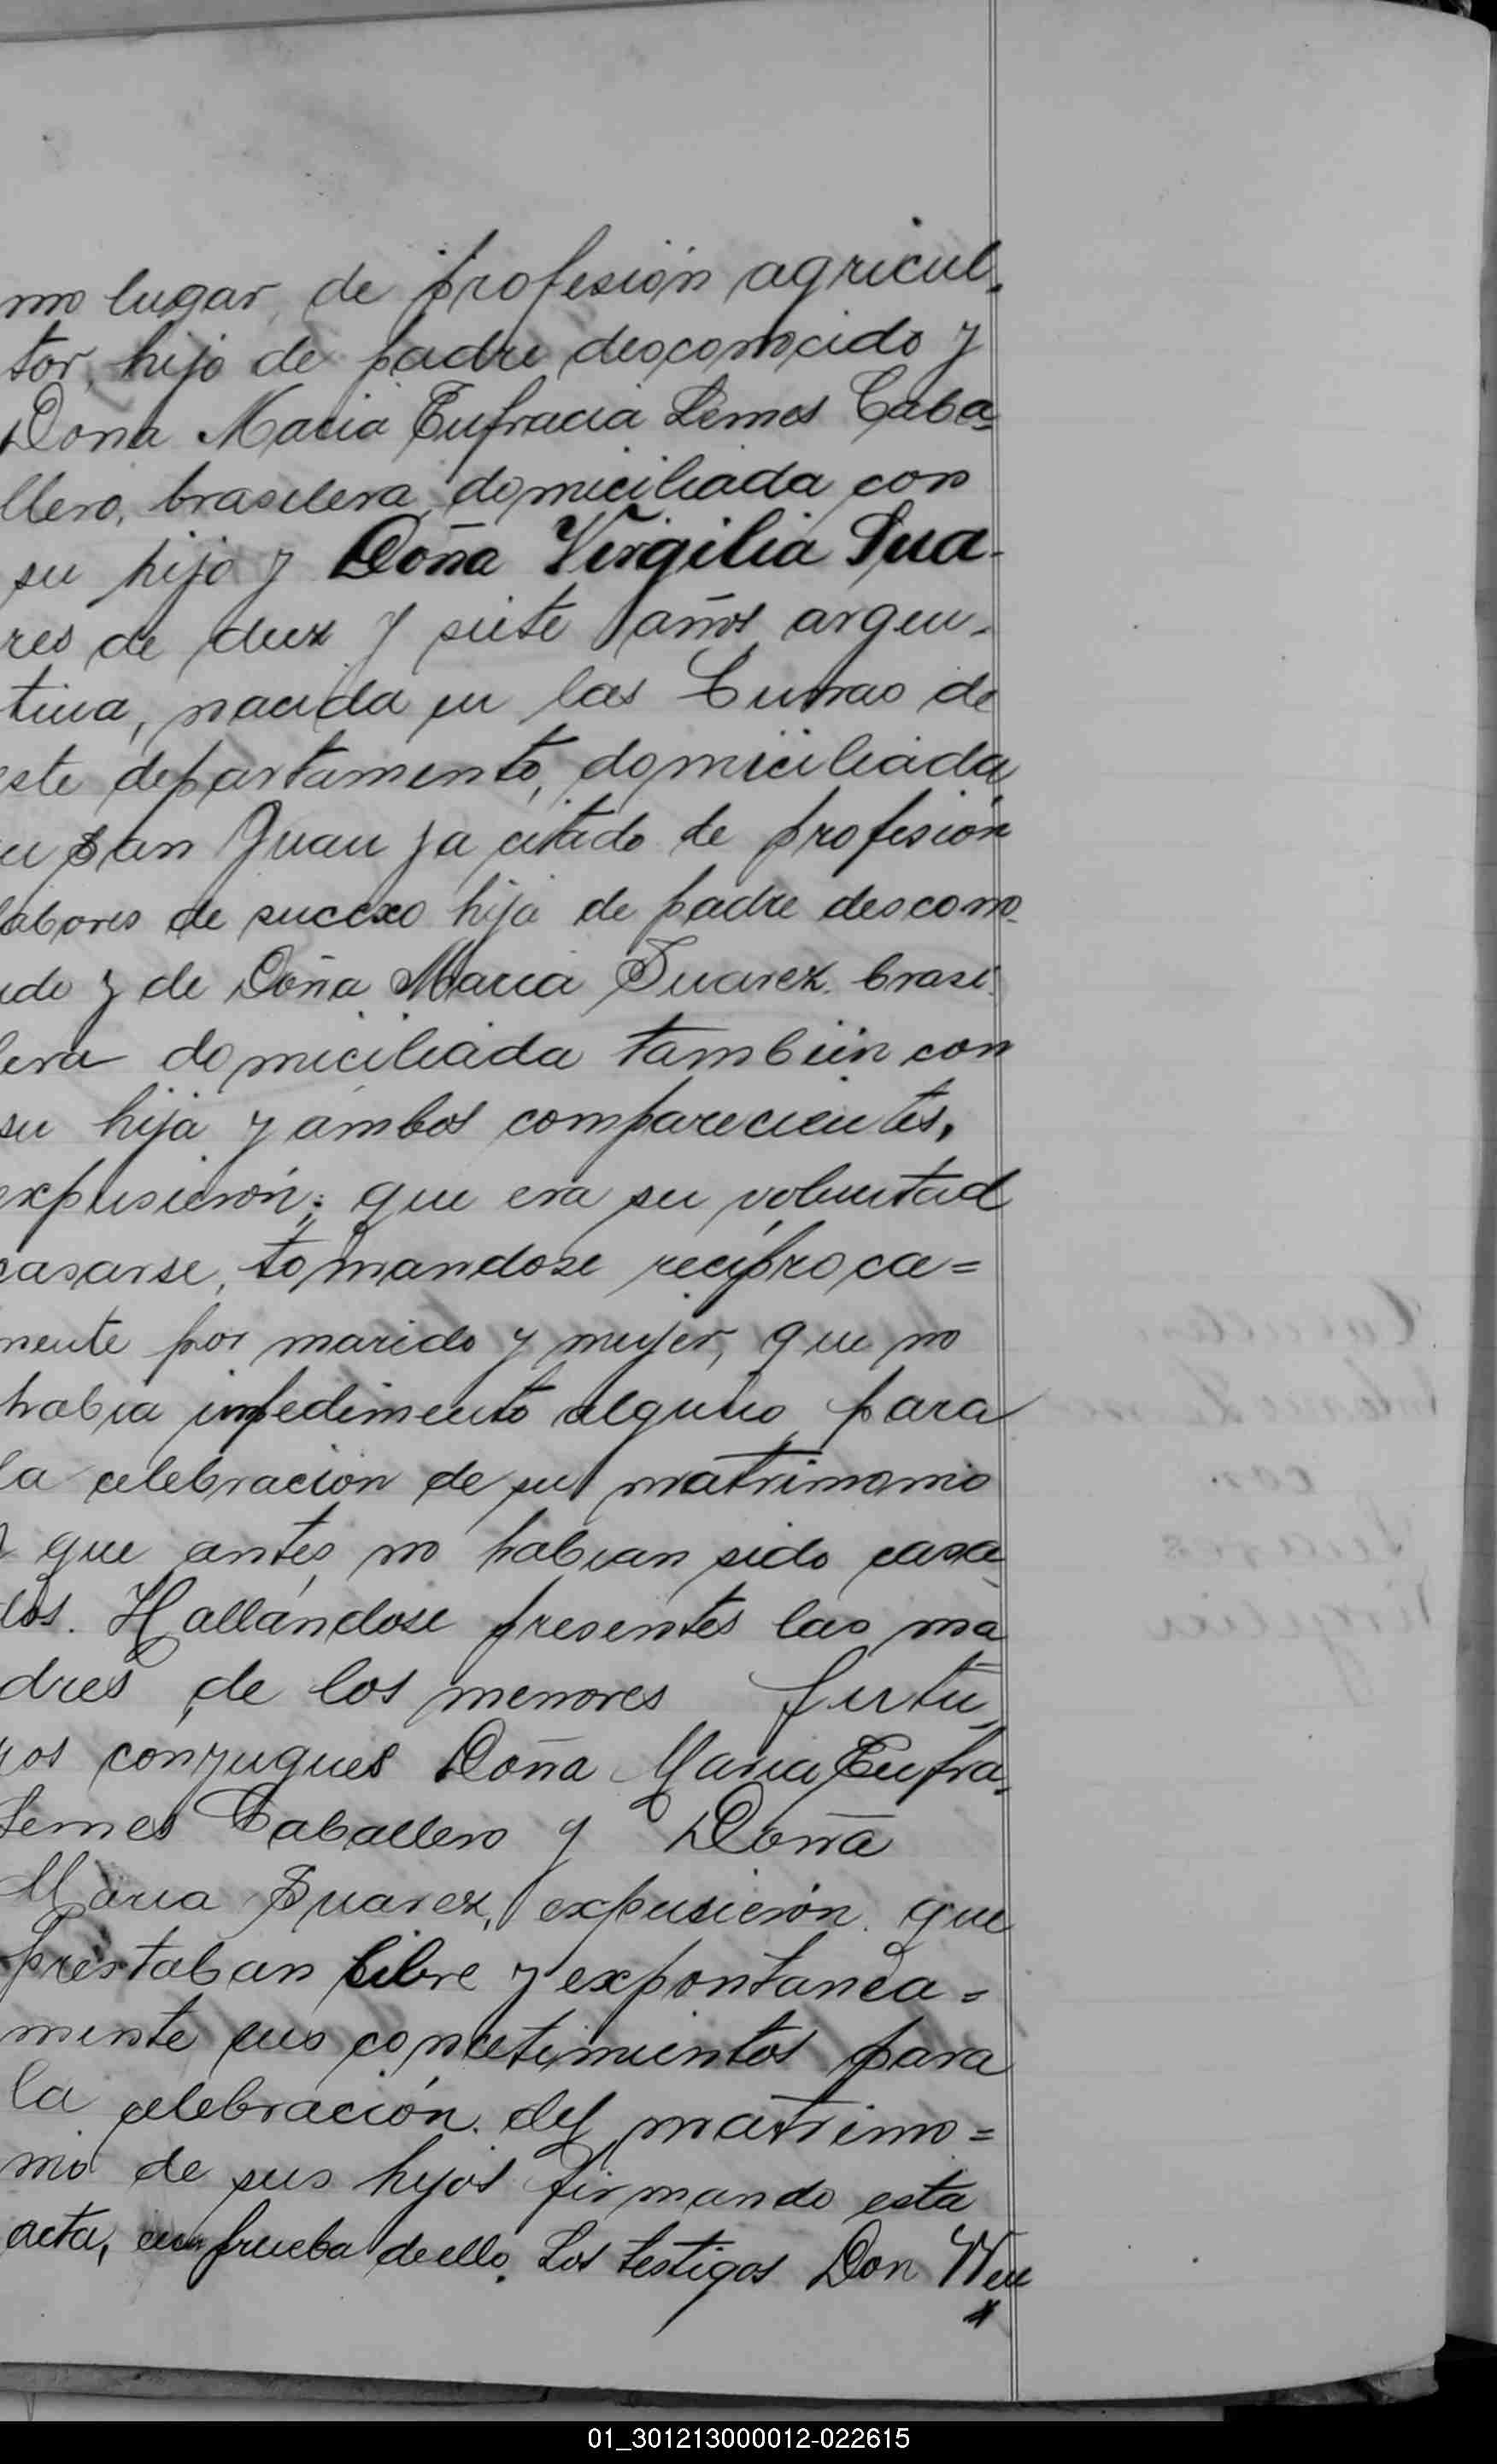 mo lugar, de profesión agricul-
tor, hijo de padre desconocido y
Doña Maria Eufracia Lemes Caba-
llero, brasilera, domiciliada con
su hijo y Doña Virgilia Sua-
res de diez y siete años argen-
tina, nacida en las Cunao de
ste departamento, domiciliada
n San Juan ya citado de profesión
labores de su cexo hija de padre descono-
ido y de Doña Maria Suarez, brasi-
lera domiciliada tambien con
su hija y ambos comparecientes,
expusierón; que era su voluntad
casarse, tomandose reciproca=
mente por marido y mujer, que no
habia impedimento alguno para
la celebracion de su matrimonio
y que antes no habian sido casa-
dos. Hallándose presentes las ma
dres de los menores futu-
ros conyugues Doña Maria Eufra-
Lemes Caballero y Doña
Maria Suarez, expusierón que
prestaban libre y expontanea=
mente sus concetimientos para
la celebración del matrimo=
nio de sus hijos firmando esta
acta, en prueba de ello. Los testigos Don Wen
01_301213000012-022615